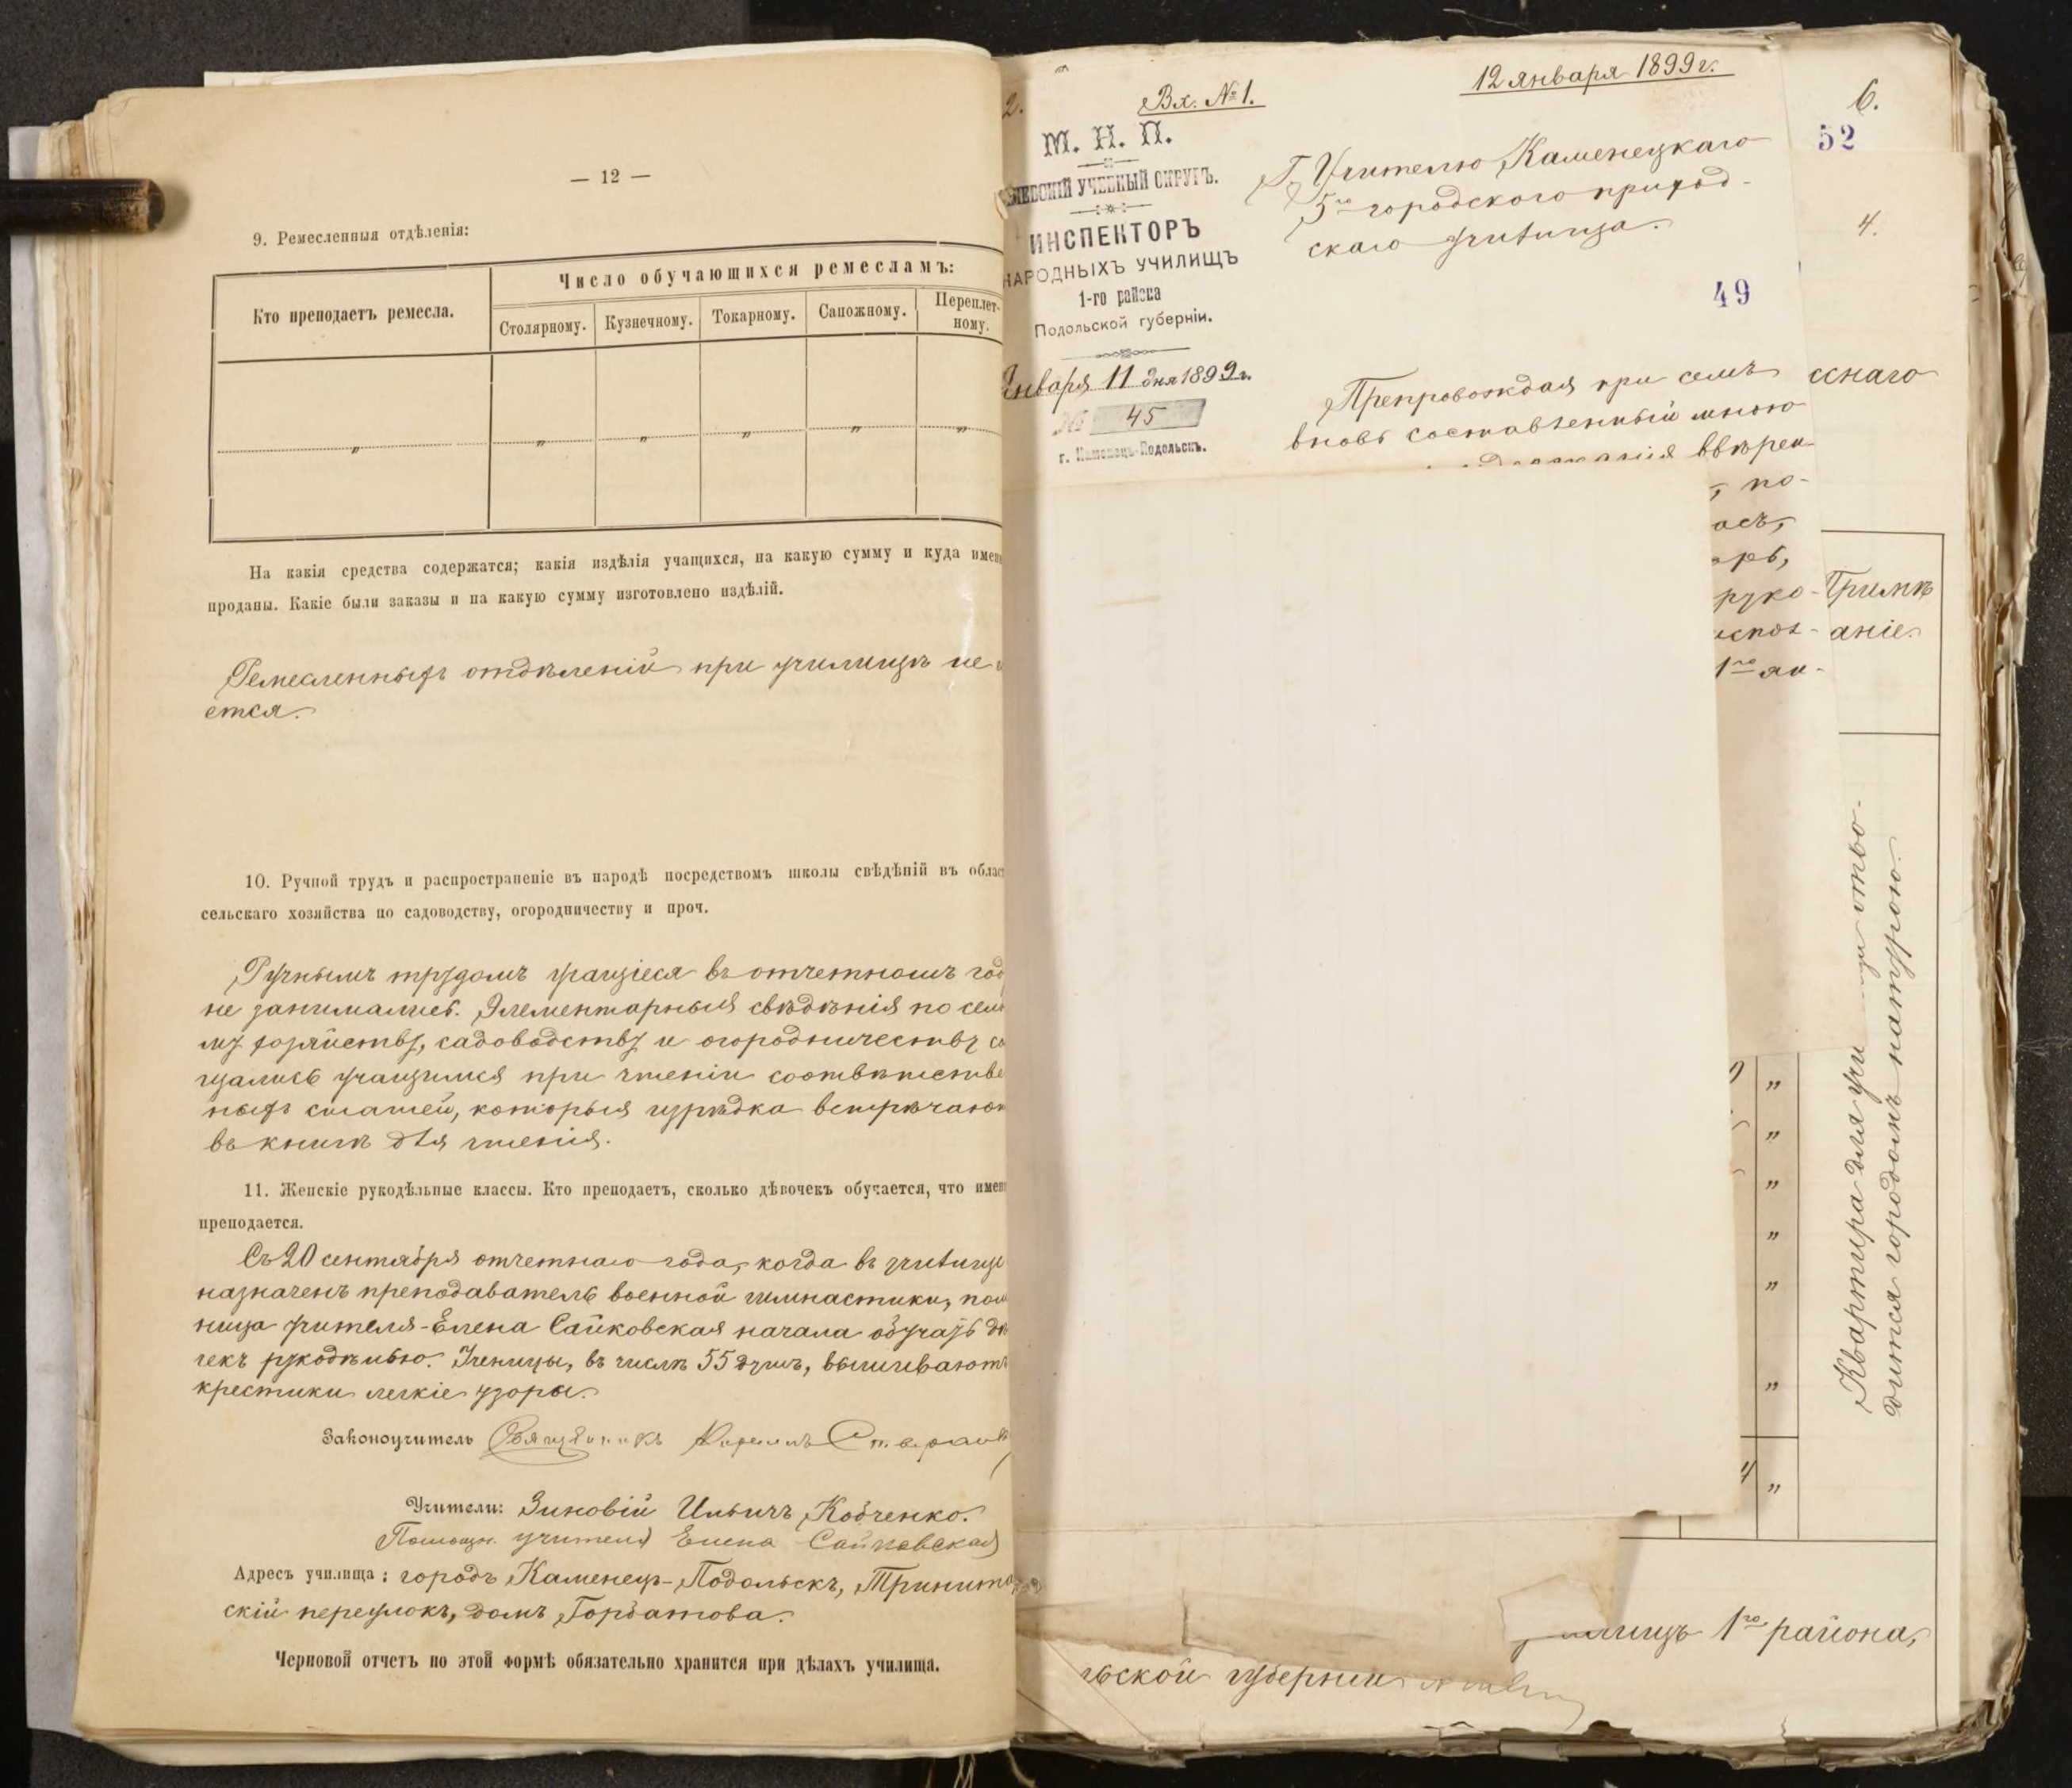 — 12 —
9. Ремесленныя отдѣленія:
Кто преподаетъ ремесла.
Число обучающихся ремесламъ:
Столярному. Кузнечному. Токарному. Сапожному. Переплет-
ному.
" " " " " "
На какія средства содержатся; какія издѣлія учащихся, на какую сумму и куда имен
проданы. Какіе были заказы и на какую сумму изготовлено издѣлій.
Ремесленныхъ отдѣленій при училищѣ не
ется.
10. Ручной трудъ и распространеніе въ народѣ посредствомъ школы свѣдѣній въ облас
сельскаго хозяйства по садоводству, огородничеству и проч.
Ручнымъ трудомъ учащіеся въ отчетномъ год
не занимались. Элементарныя свѣдѣнія по сель
му хозяйству, садоводству и огородничеству со
щались учащимся при чтеніи соотвѣтстве
ныхъ статей, которыя изрѣдка встрѣчают
въ книгѣ для чтенія.
11. Женскіе рукодѣльные классы. Кто преподаетъ, сколько дѣвочекъ обучается, что имен
преподается.
Съ 20 сентября отчетнаго года, когда въ училище
назначенъ преподаватель военной гимнастики, пом
ница учителя - Елена Сайковская начала обучать дѣ
чекъ рукодѣлью. Ученицы, въ числѣ 55 душъ, вышиваютъ
крестики легкіе узоры.
Законоучитель Священникъ Кириллъ
Учители: Зиновій Ильичъ Кобченко.
Помощн. учителя Елена Сайковская
Адресъ училища: городъ Каменецъ-Подольскъ, Тринита
скій переулокъ, домъ Горбатова.
Черновой отчетъ по этой формѣ обязательно хранится при дѣлахъ училища.
2.
Вх. № 1.
12 января 1899 г.
М. Н. П.
КІЕВСКІЙ УЧЕБНЫЙ ОКРУГЪ.
ИНСПЕКТОРЪ
НАРОДНЫХЪ УЧИЛИЩЪ
1-го района
Подольской губерніи.
Января 11 дня 1899 г.
№ 45
г. Каменецъ-Подольскъ.
Г. Учителю Каменецкаго
5го городского приход-
скаго училища.
49
Препровождая при семъ
вновь составленный мною
ввѣрен
6.
52
4.
скаго
, по-
ась,
арь,
руко-
1го ян-
Примѣ
аніе.
Квартира для учи отво-
дится городомъ натурою.
" " " " " " "
4
1го района,
льской губерніи